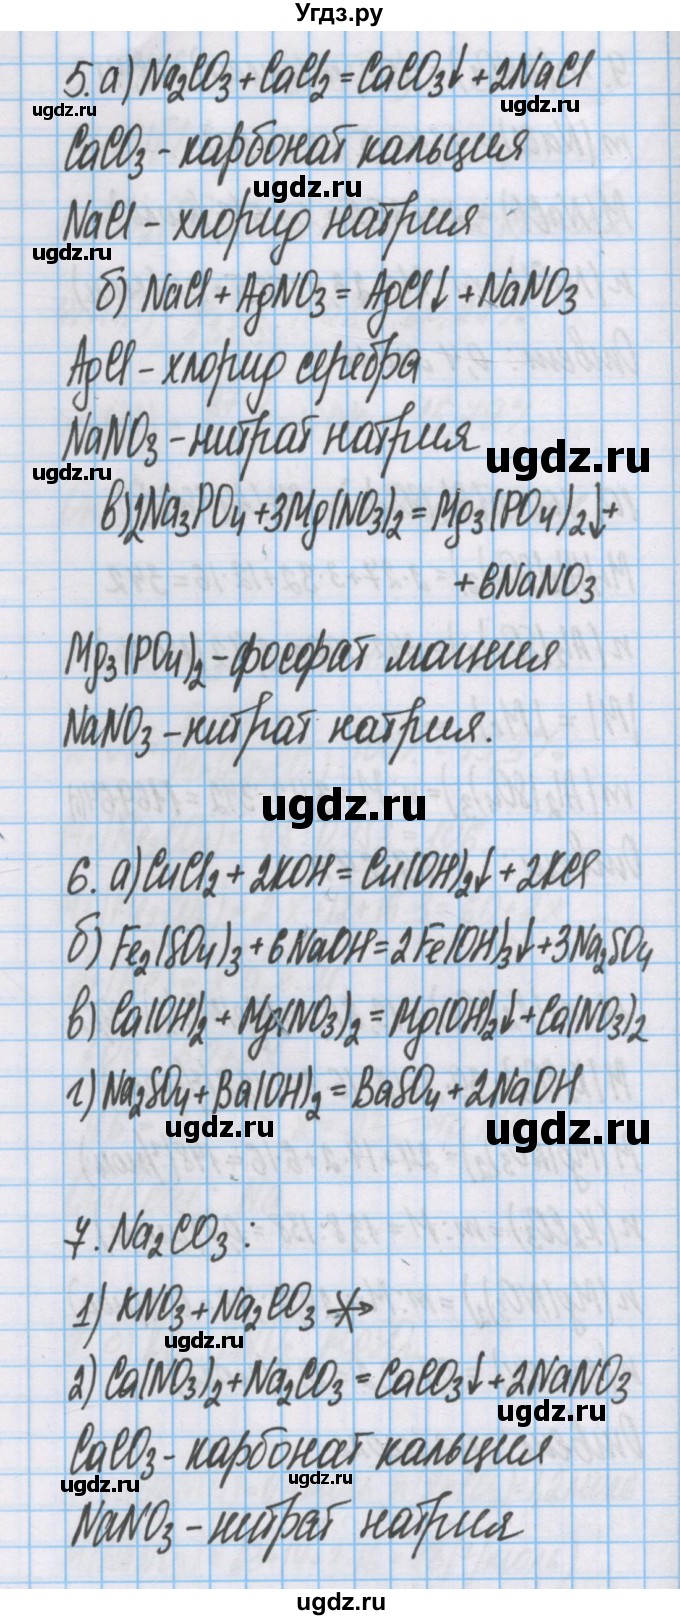 Угдз.ру
5. а) Na₂CO₃ + CaCl₂ = CaCO₃↓ + 2NaCl
ugdz.ru
CaCO₃ - карбонат кальция
ugdz.ru
NaCl - хлорид натрия
ugdz.ru
б) NaCl + AgNO₃ = AgCl↓ + NaNO₃
AgCl - хлорид серебра
NaNO₃ - нитрат натрия
ugdz.ru
ugdz.ru
в) 2Na₃PO₄ + 3Mg(NO₃)₂ = Mg₃(PO₄)₂↓ +
+ 6NaNO₃
Mg₃(PO₄)₂ - фосфат магния
NaNO₃ - нитрат натрия.
ugdz.ru
6. а) CuCl₂ + 2KOH = Cu(OH)₂↓ + 2KCl
б) Fe₂(SO₄)₃ + 6NaOH = 2Fe(OH)₃↓ + 3Na₂SO₄
в) Ca(OH)₂ + Mg(NO₃)₂ = Mg(OH)₂↓ + Ca(NO₃)₂
г) Na₂SO₄ + Ba(OH)₂ = BaSO₄ + 2NaOH
ugdz.ru
ugdz.ru
7. Na₂CO₃ :
1) KNO₃ + Na₂CO₃ ↛
ugdz.ru
2) Ca(NO₃)₂ + Na₂CO₃ = CaCO₃↓ + 2NaNO₃
ugdz.ru
CaCO₃ - карбонат кальция
ugdz.ru
ugdz.ru
NaNO₃ - нитрат натрия
ugdz.ru